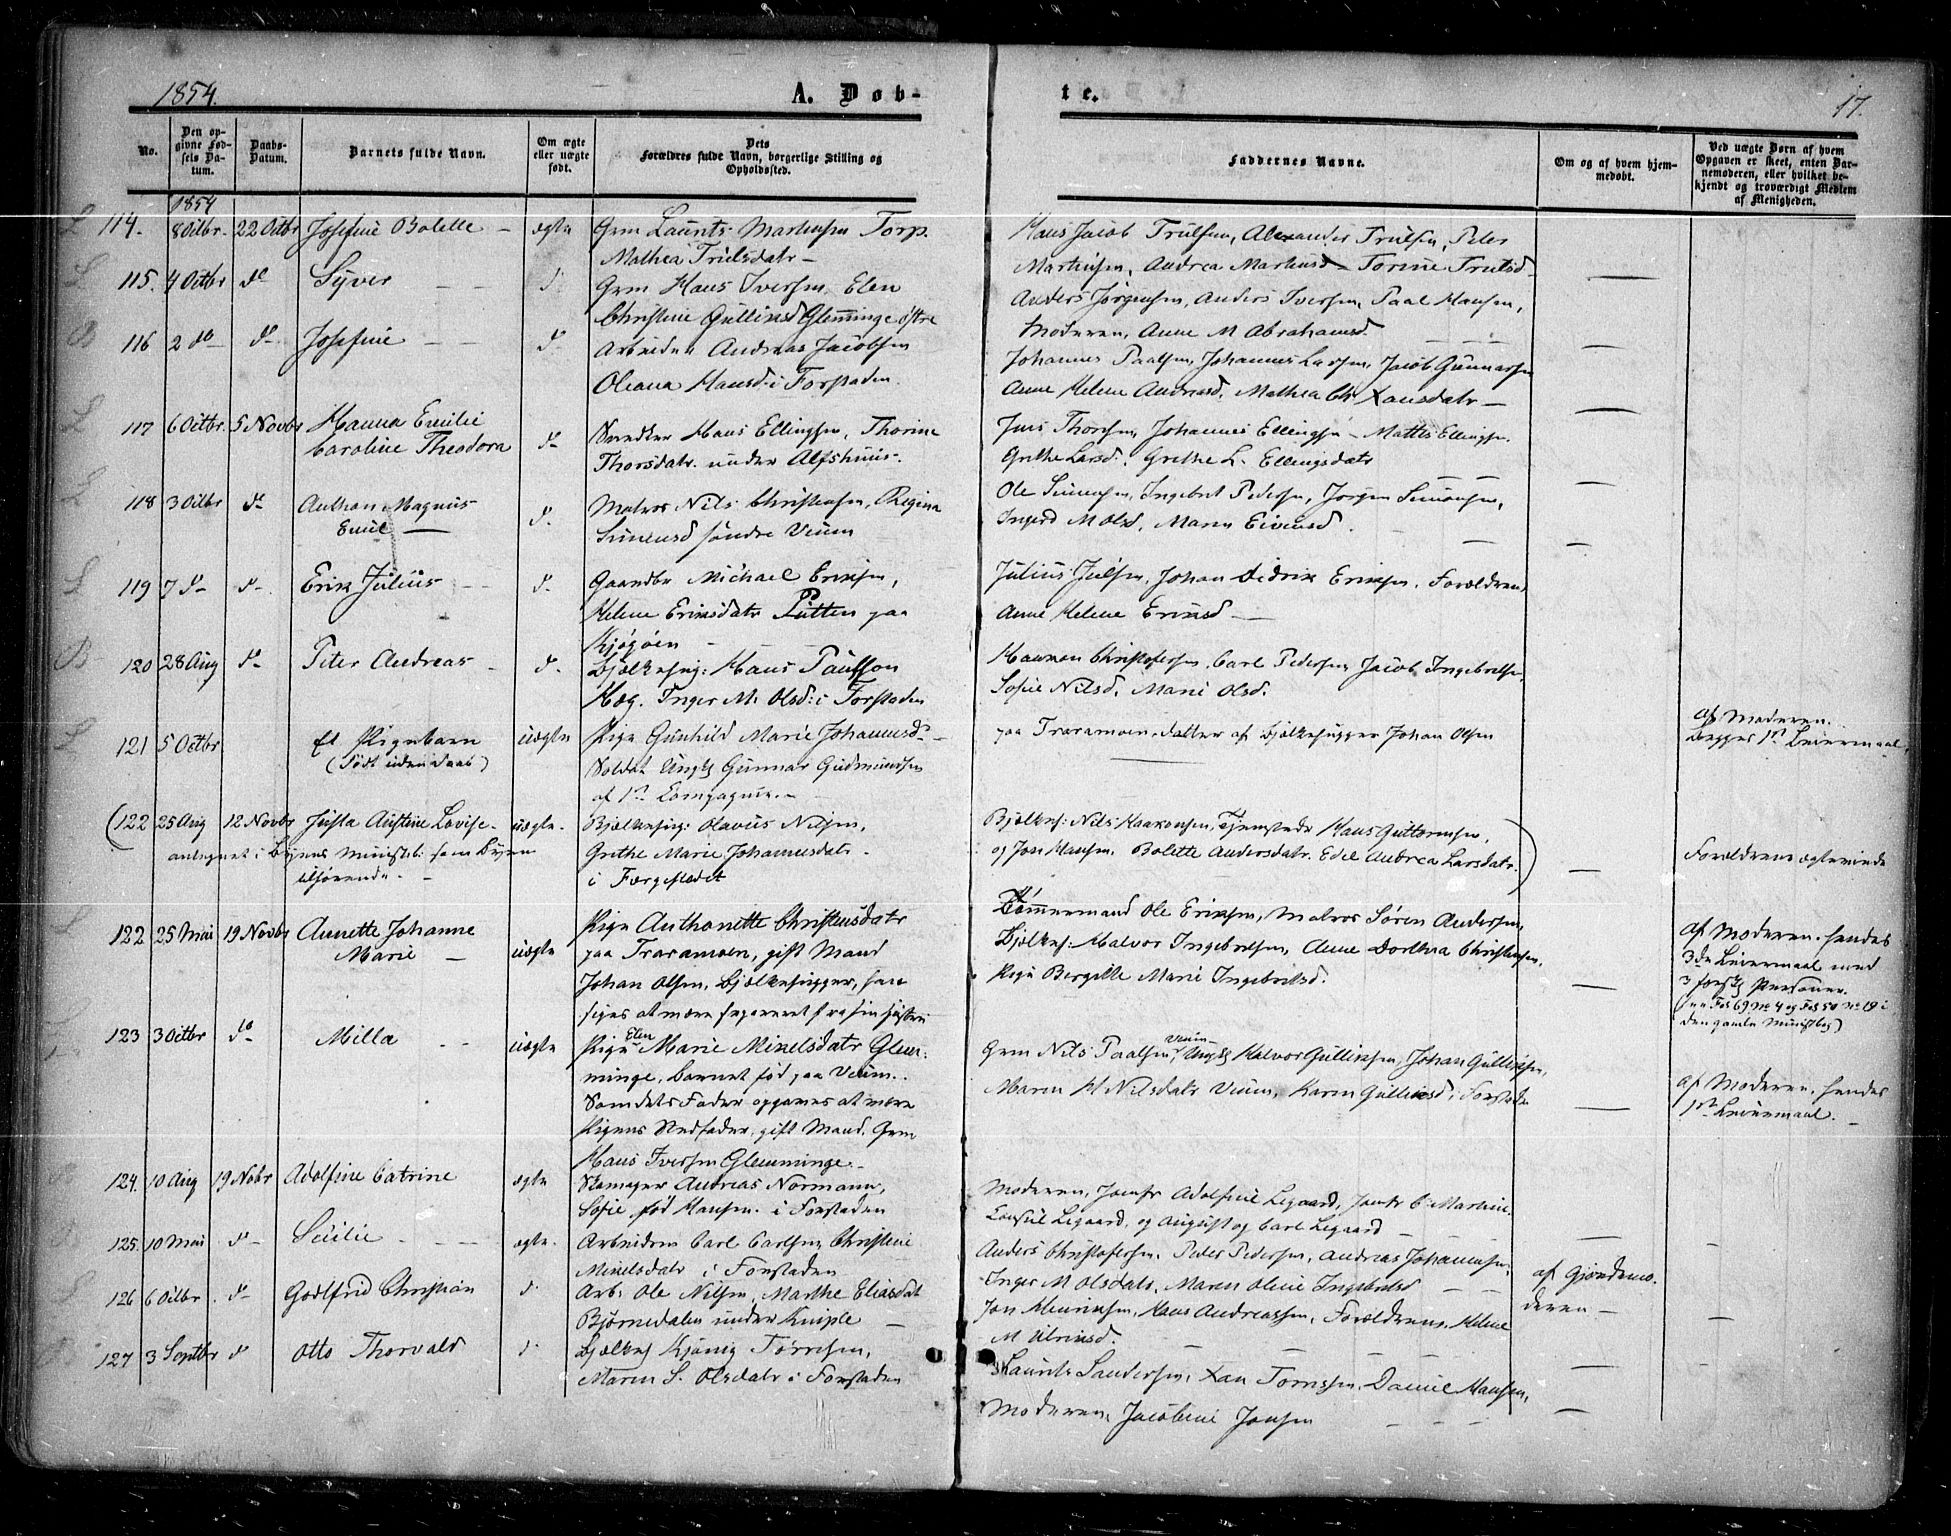 1854.
A. Døb-
te.
17.
No.
Den op-
givne Fød-
sels Da-
tum.
Daabs-
Datum.
Barnets fulde Navn.
Om ægte
eller uægte
født.
Dets
Forældres fulde Navn, borgerlige Stilling og
Opholdssted.
Faddernes Navne.
Om og af hvem hjem-
medøbt.
Ved uægte Børn af hvem
Opgaven er skeet, enten Bar-
nemoderen, eller hvilket be-
kjendt og troværdigt Medlem
af Menigheden.
1854
L 114. 8 Octbr. 22 Octbr Josefine Bolette - ægte Grm Laurits Martinsen Torp.
Mathea Trulsdatr -
Hans Jacob Trulsen, Alexander Trulsen, Peter
Martinsen, Andrea Martinsd - Torine Trulsd -
L 115. 4 Octbr do Syver - - d. Grm Hans Iversen, Elen
Christine Gulliksd Glemminge østre
Anders Jørgensen, Anders Iversen, Paal Hansen,
Moderen, Anne M Abrahamsd.
B 116 2 do do Josefine - - d. Arbeider Andreas Jacobsen
Oleana Hansd. i Forstaden.
Johannes Paalsen, Johannes Larsen, Jacob Gunnarsen
Anne Helene Andreasd. Mathea Chr Xansdatr -
L 117 6 Octbr. 5 Novbr Hanna Emilie
Caroline Theodora d. Snedker Hans Ellingsen, Thorine
Thorsdatr. under Alfshuus.
Jens Thorsen, Johannes Ellingsen - Mathis Ellingsen.
Grethe Larsd. Grethe L. Ellingsdatr
L 118 3 Octbr do Anthon Magnus
Emil - d. Matros Nils Christensen, Regina
Simensd søndre Veum
Ole Simensen, Ingebret Pedersen, Jørgen Simonsen,
Ingerd M Olsd, Maren Eivensd.
L 119 7 d- d- Erik Julius - d. Gaardbr Michael Eriksen,
Helene Eriksdatr Putten paa
Kjøgøen -
Julius Julsen, Johan Didrik Eriksen. Forældrene,
Anne Helene Eriksd -
B 120 28 Aug d- Peter Andreas - d. Bjelkehug: Hans Paulson
Hæg. Inger M. Olsd: i Forstaden
Haumon Christofersen, Carl Pedersen, Jacob Ingebretsen
Sofie Nilsd, Marie Olsd.
L 121 5 Octbr et Pigebarn
(født uden Daab) uægte Pige Gunhild Marie Johannesd -
Soldat Ungk Gunnar Gudmundsen
af 1st Compagnie. -
paa Traramoen, datter af Bjelkehugger Johan Olsen
af Moderen.
begges 1st Leiermaal.
(122 25 Aug 12 Novbr Justa Austine Lovise. uægte. Bjelkehug: Olavus Nilsen,
antegnet i Byens Ministeb: som Byen
tilhørende. -
Grethe Marie Johannesdatr.
i Færgestedet
Bjelkeh: Nils Haakonsen, Tjenstedr Hans Guttormsen,
og Jon Hansen. Bolette Andersdatr. Edel Andrea Larsdatr.)
Forældrene ægteviede
L 122 25 Mai 19 Novbr Annette Johanne
Marie - uægte Pige Anthonette Christensdatr
paa Traramoen, gift Mand
Johan Olsen, Bjelkehugger, som
siges at være separeret fra sin Hustru
Tømmermand Ole Eriksen, Matros Søren Andersen,
Bjelkeh: Halvor Ingebretsen, Anne Dorthea Christensen,
Pige Bergitte Marie Ingebretsd.
af Moderen. hendes
3de Leiermaal med
3 forskj Personer.
(see Fol 69 No 4 og Fol 50 No 19 i
den gamle Ministbog)
123 3 Octbr do Milla - - uægte Pige Elen Marie Mikelsdatr Glem:
minge, Barnet fød paa Veum.
Som dets Fader opgaves at være
Pigens Stedfader, gift Mand, Grm
Hans Iversen Glemminge.
Grm Nils Paalsen Veum, Ungk Halvor Gulliksen, Johan Gulliksen,
Maren H Nilsdatr Veum, Karen Gulliksd, Forstaden
af Moderen, hendes
1st Leiermaal. -
124. 10 Aug 19 Nobr Adolfine Catrine ægte Skomager Andreas Normann,
Sofie fød Hansen. i Forstaden
Moderen, Jomfr Adolfine Legaard, Jomfr C. Martine.
Consul Legaard, og August og Carl Legaard -
125. 10 Mai d- Sesilie - - - ægte. Arbeidren Carl Carlsen, Christine
Mikelsdatr i Forstaden
Anders Christofersen. Peder Pedersen, Andreas Johannesen,
Inger M Olsdatr, Maren Oline Ingebretsd
126 6 Octbr. d- Godtfrid Christian d. Arb: Ole Nilsen, Marthe Eliasdat
Bjørnedalen under Kniple -
Jon Henriksen, Hans Andreassen, Forældrene, Helene
M Ulriksd.
af Gjordemo.
deren -
127 3 Septbr d Otto Thorvald d. Bjelkehj Kjønig Torresen,
Maren S. Olsdatr i Forstaden
Laurits Sandersen, Xan Tomssen, Daniel Hansen,
Moderen, Jacobine Jonsen